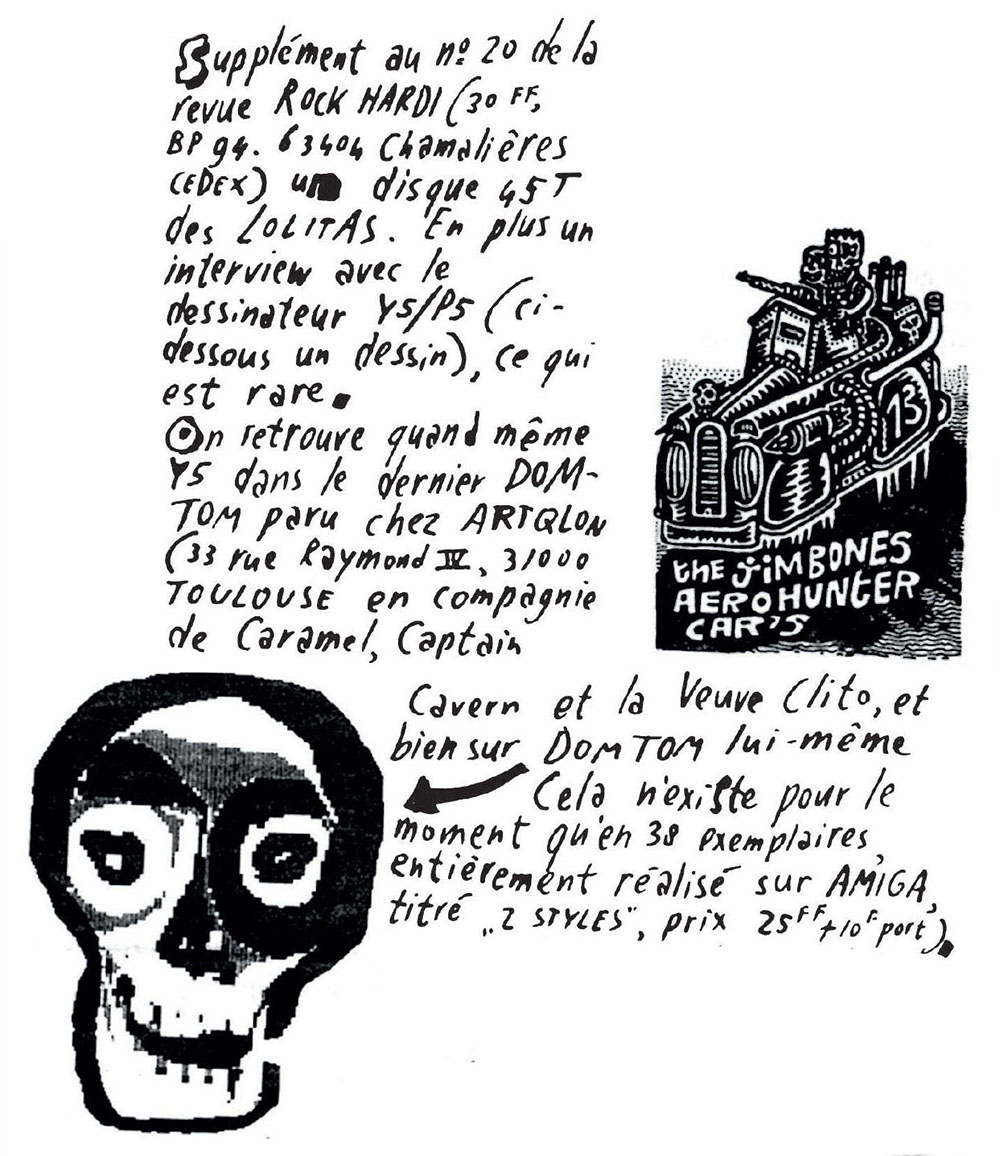 Supplément au nº 20 de la
revue ROCK HARDI (30 FF,
BP 94. 63404 Chamalières
CEDEX) un disque 45T
des LOLITAS. En plus un
interview avec le
dessinateur Y5/P5 (ci-
dessous un dessin), ce qui
est rare.
On retrouve quand même
Y5 dans le dernier DOM-
TOM paru chez ARTQLON
(33 rue Raymond IV, 31000
TOULOUSE en compagnie
de Caramel, Captain
Cavern et la Veuve Clito, et
bien sur DOM TOM lui-même
Cela n'existe pour le
moment qu'en 38 exemplaires,
entièrement réalisé sur AMIGA,
titré „2 STYLES", prix 25FF +10F port).
13
the JIMBONES
AEROHUNTER
CAR'S